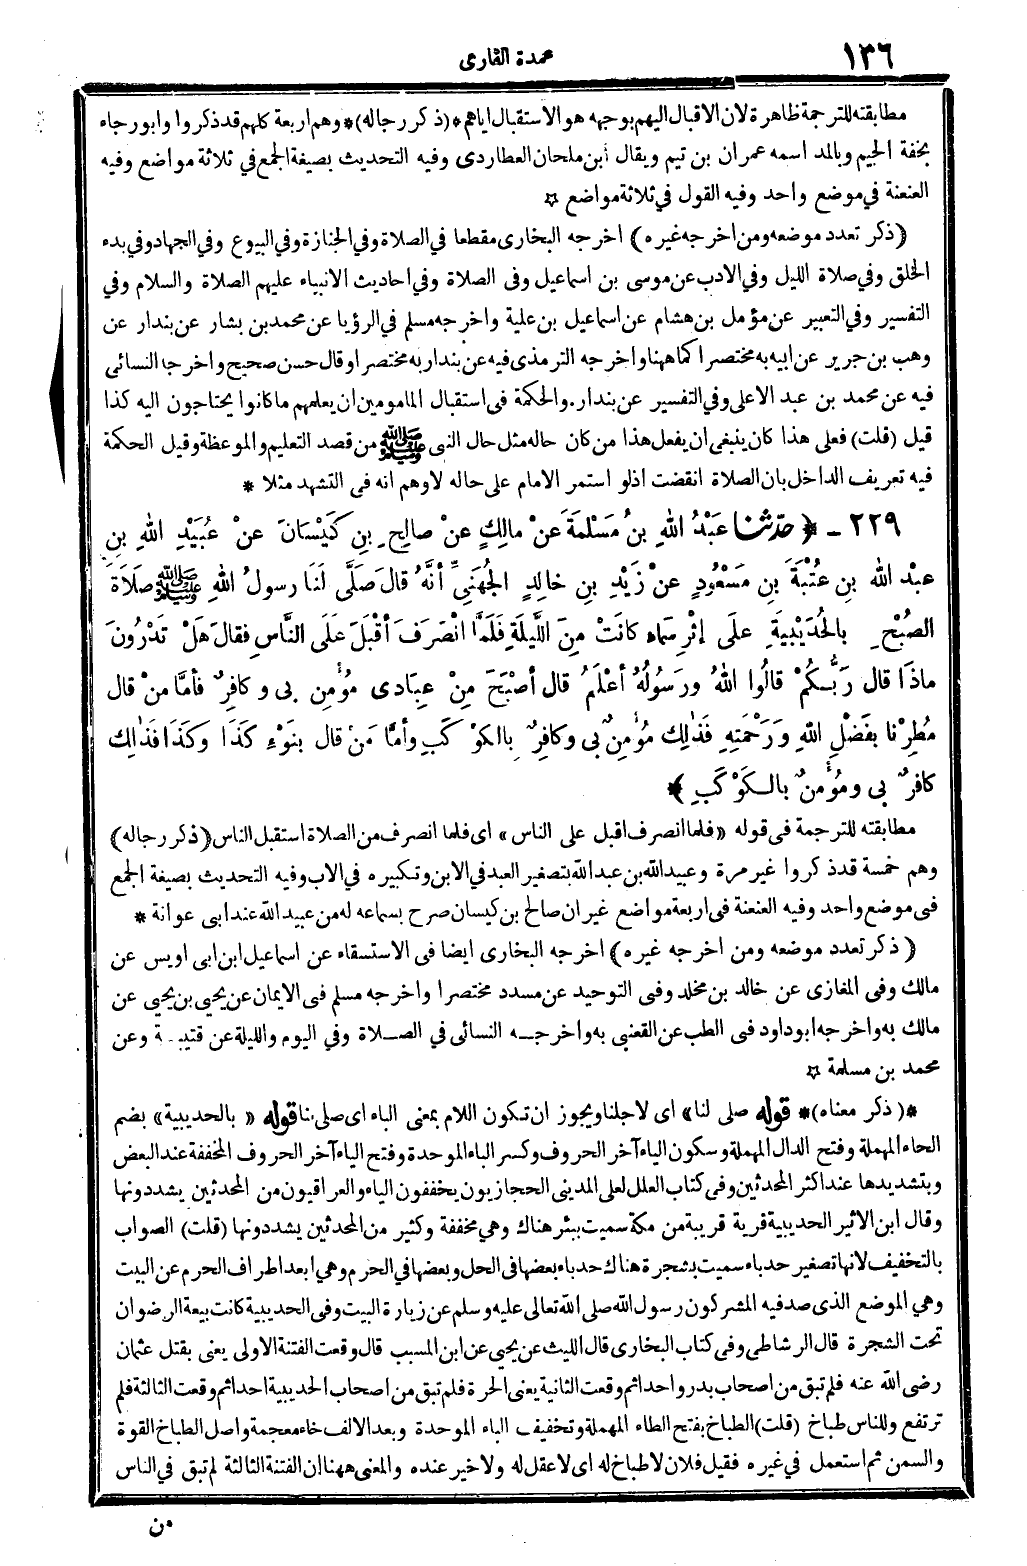 ١٣٦
عمدة القارى
مطابقته للترجمة ظاهرة لان الاقبال اليهم بوجهه هو الاستقبال اياهم *(ذكر رجاله)* وهم اربعة كلهم قد ذكروا وابو رجاء
بخفة الجيم وبالمد اسمه عمران بن تيم ويقال ابن ملحان العطاردى وفيه التحديث بصيغة الجمع في ثلاثة مواضع وفيه
العنعنة في موضع واحد وفيه القول في ثلاثة مواضع ۞
(ذكر تعدد موضعه ومن اخرجه غيره) اخرجه البخارى مقطعا في الصلاة وفي الجنازة وفي البيوع وفي الجهاد وفي بدء
الخلق وفي صلاة الليل وفي الادب عن موسى بن اسماعيل وفى الصلاة وفي احاديث الانبياء عليهم الصلاة والسلام وفي
التفسير وفي التعبير عن مؤمل بن هشام عن اسماعيل بن علية واخرجه مسلم في الرؤيا عن محمد بن بشار عن بندار عن
وهب بن جرير عن ابيه به مختصرا كما ههنا واخرجه الترمذى فيه عن بندار به مختصرا وقال حسن صحيح واخرجا النسائى
فيه عن محمد بن عبد الاعلى وفي التفسير عن بندار. والحكمة فى استقبال المامومين ان يعلمهم ما كانوا يحتاجون اليه كذا
قيل (قلت) فعلى هذا كان ينبغى ان يفعل هذا من كان حاله مثل حال النبى ﷺ من قصد التعليم والموعظة وقيل الحكمة
فيه تعريف الداخل بان الصلاة انقضت اذ لو استمر الامام على حاله لاوهم انه فى التشهد مثلا *
٢٢٩ - ﴿ حدّثنا عَبْدُ اللهِ بنُ مَسْلَمَةَ عنْ مالِكٍ عنْ صالِحِ بنِ كَيْسَانَ عنْ عُبَيْدِ اللهِ بنِ
عبْدِ اللهِ بنِ عُتْبَةَ بنِ مَسْعُودٍ عنْ زَيْدِ بنِ خالِدٍ الجُهَنِيِّ أنَّهُ قالَ صَلَّى لَنَا رسولُ اللهِ ﷺ صَلَاةَ
الصُّبْحِ بالحُدَيْبِيَةِ علَى إثْرِ سَماءٍ كانَتْ مِنَ اللَّيلَةِ فلَمَّا انْصَرَفَ أقْبَلَ علَى النَّاسِ فقالَ هَلْ تَدْرُونَ
ماذَا قال رَبُّكُمْ قالُوا اللهُ ورَسُولُهُ أعْلَمُ قال أصْبَحَ مِنْ عِبَادِى مُؤْمِن بِى وكافِرٌ فأمَّا منْ قال
مُطِرْنا بفَضْلِ اللهِ ورَحْمَتِهِ فَذٰلِكَ مُؤْمِنٌ بى وكافِرٌ بالكَوْكَبِ وأمَّا مَنْ قال بنَوْءِ كَذَا وكَذَا فَذٰلِكَ
كافِرٌ بِى ومُؤْمِنٌ بالكَوْكَبِ ﴾
مطابقته للترجمة فى قوله «فلما انصرف اقبل على الناس» اى فلما انصرف من الصلاة استقبل الناس (ذكر رجاله)
وهم خمسة قد ذكروا غير مرة وعبيد الله بن عبد الله بتصغير العبد في الابن وتكبيره في الاب وفيه التحديث بصيغة الجمع
فى موضع واحد وفيه العنعنة فى اربعة مواضع غير ان صالح بن كيسان صرح بسماعه له من عبيد الله عند ابى عوانة *
(ذكر تعدد موضعه ومن اخرجه غيره) اخرجه البخارى ايضا فى الاستسقاء عن اسماعيل ابن ابى اويس عن
مالك وفى المغازى عن خالد بن مخلد وفى التوحيد عن مسدد مختصرا واخرجه مسلم فى الايمان عن يحيى بن يحيى عن
مالك به واخرجه ابو داود فى الطب عن القعنبى به واخرجه النسائى في الصلاة وفي اليوم والليلة عن قتيبة وعن
محمد بن مسلمة ۞
*(ذكر معناه)* قوله صلى لنا» اى لاجلنا ويجوز ان تكون اللام بمعنى الباء اى صلى بنا قوله «بالحديبية» بضم
الحاء المهملة وفتح الدال المهملة وسكون الياء آخر الحروف وكسر الباء الموحدة وفتح الياء آخر الحروف المخففة عند البعض
وبتشديدها عند اكثر المحدثين وفى كتاب العلل لعلى المدينى الحجازيون يخففون الياء والعراقيون من المحدثين يشددونها
وقال ابن الاثير الحديبية قرية قريبة من مكة سميت ببئر هناك وهي مخففة وكثير من المحدثين يشددونها (قلت) الصواب
بالتخفيف لانها تصغير حدباء سميت بشجرة هناك حدباء بعضها فى الحل وبعضها في الحرم وهي ابعد اطراف الحرم عن البيت
وهي الموضع الذى صد فيه المشركون رسول الله صلى الله تعالى عليه وسلم عن زيارة البيت وفى الحديبية كانت بيعة الرضوان
تحت الشجرة قال الرشاطى وفى كتاب البخارى قال الليث عن يحيى عن ابن المسيب قال وقعت الفتنة الاولى يعنى بقتل عثمان
رضى الله عنه فلم تبق من اصحاب بدر واحدا ثم وقعت الثانية يعنى الحرة فلم تبق من اصحاب الحديبية احدا ثم وقعت الثالثة فلم
ترتفع وللناس طباخ (قلت) الطباخ بفتح الطاء المهملة وتخفيف الباء الموحدة وبعد الالف خاء معجمة واصل الطباخ القوة
والسمن ثم استعمل في غيره فقيل فلان لا طباخ له اى لا عقل له ولا خير عنده والمعنى ههنا ان الفتنة الثالثة لم تبق في الناس
من